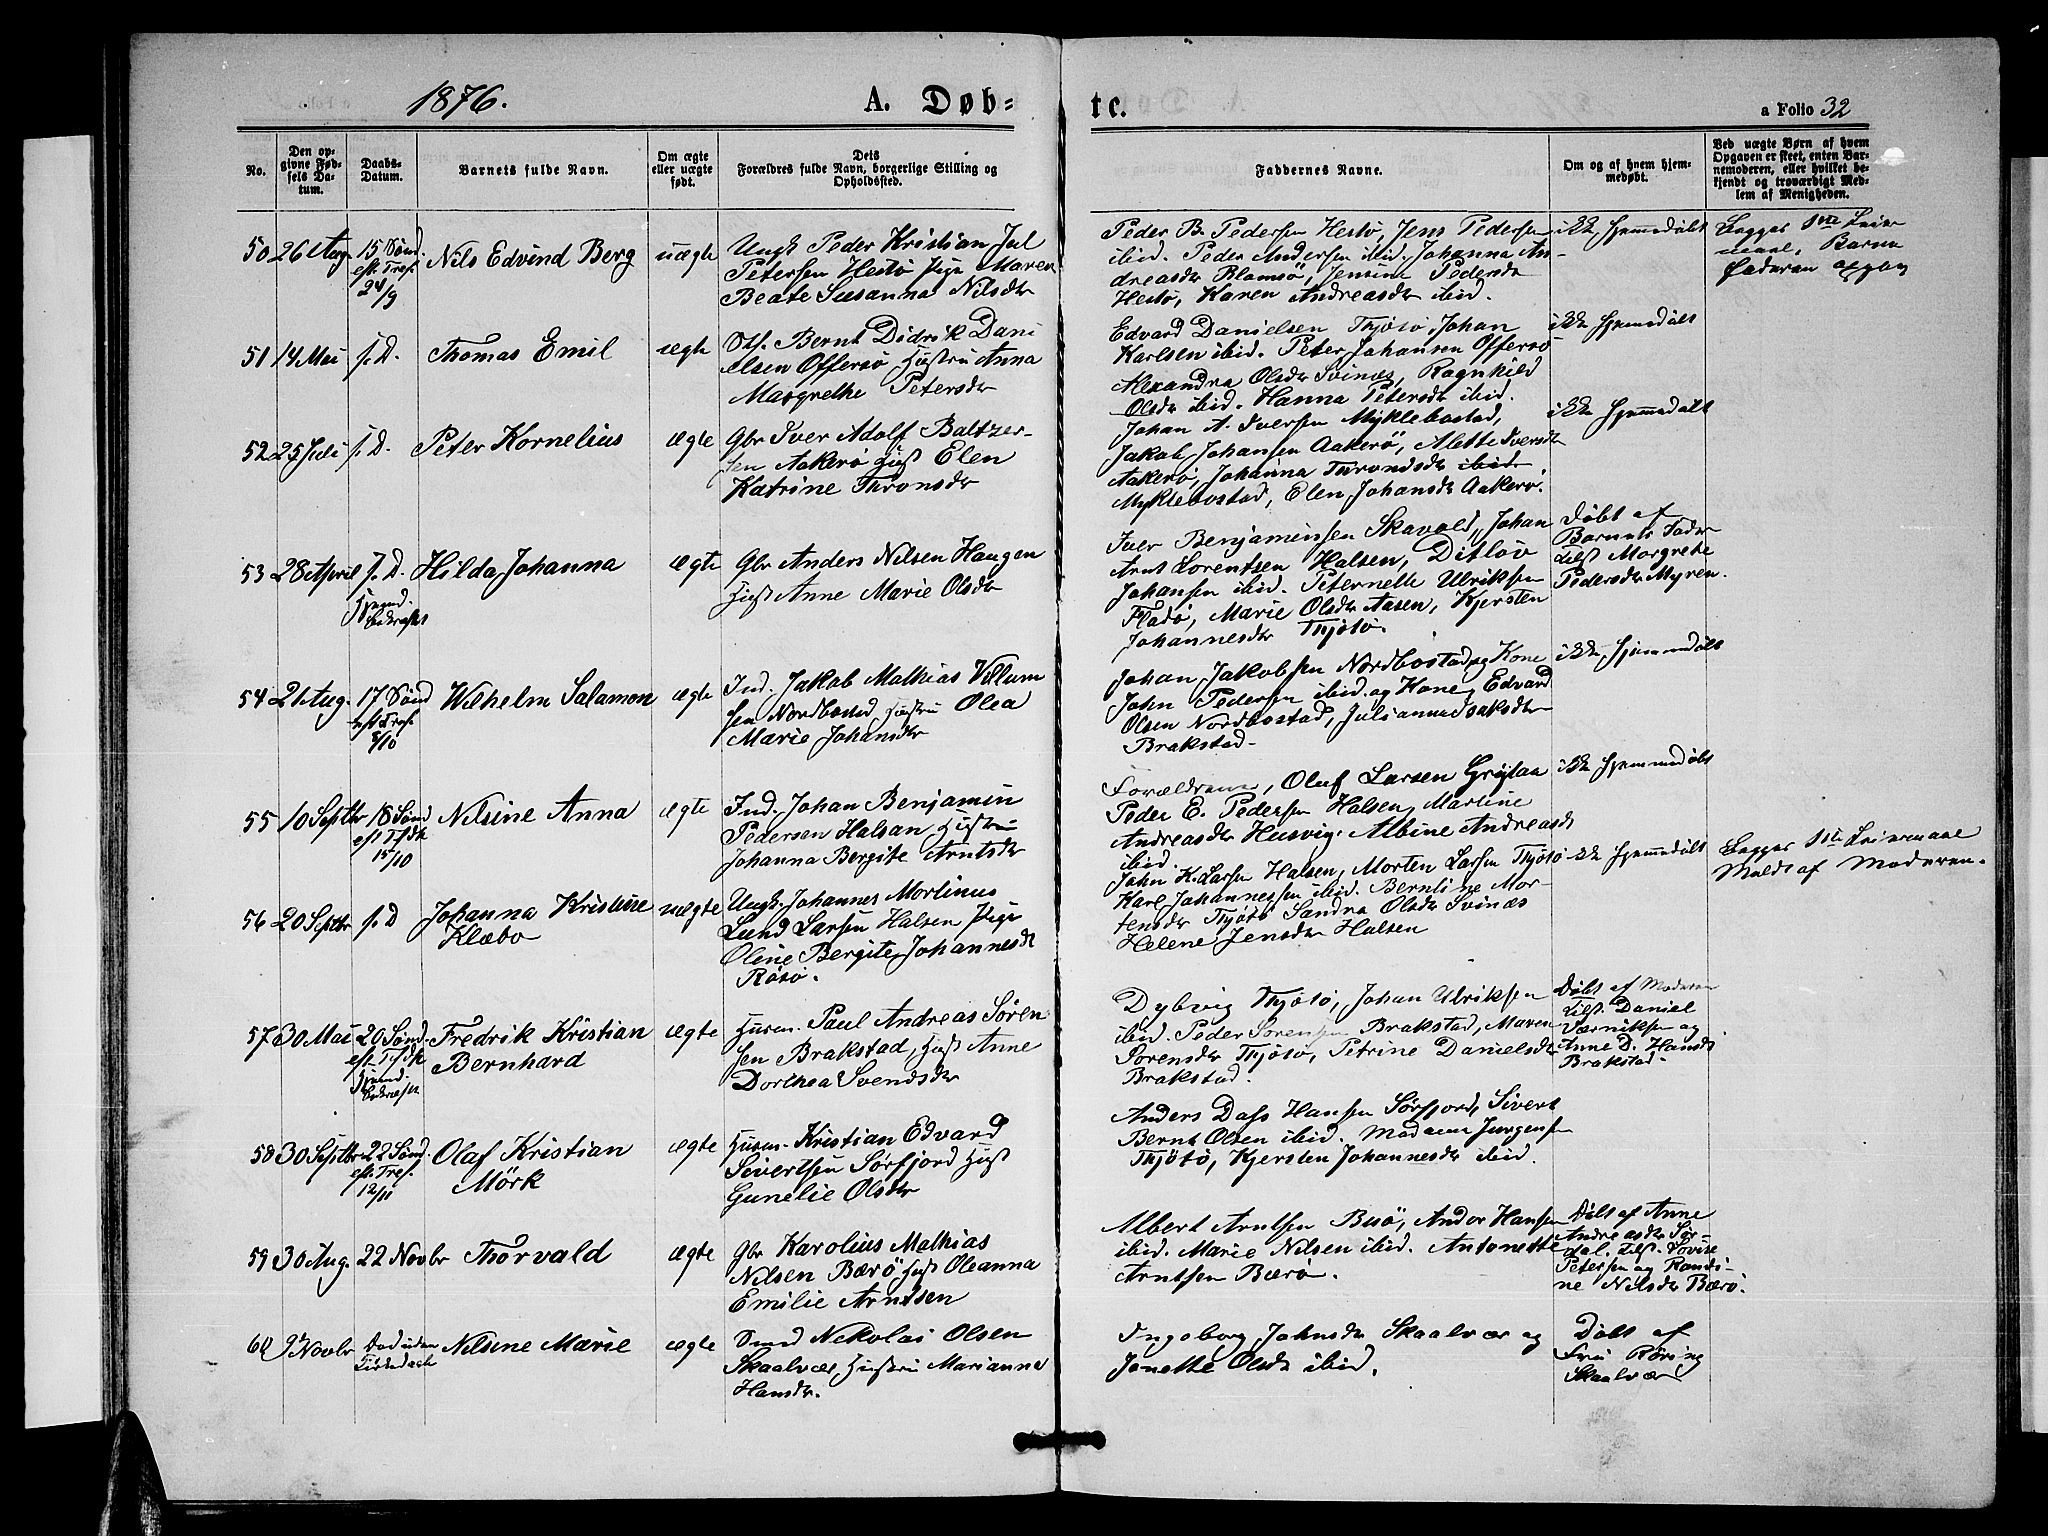 1876.
A. Døb=
te.
a Folio 32
No.
Den op-
givne Fød-
sels Da-
tum.
Daabs-
Datum.
Barnets fulde Navn.
Om ægte
eller uægte
født.
Dets
Forældres fulde Navn, borgerlige Stilling og
Opholdssted.
Faddernes Navne.
Om og af hvem hjem-
medøbt.
Ved uægte Børn af hvem
Opgaven er skeet, enten Bar-
nemoderen, eller hvilket be-
kjendt og troværdigt Med-
lem af Menigheden.
50 26 Aug. 15 Sønd.
eft. Tref.
24/9
Nils Edvind Berg
uægte
Ungk Peder Kristian Jul
Petersen Hestø Pige Maren
Beate Susanna Nilsdtr
Peder B. Pedersen Hestø, Jens Pedersen
ibid. Peder Andersen ibid. Johanna An-
dreasdtr Blomsø, Jensine Pedersdtr
Hestø, Karen Andreasdtr ibid.
ikke hjemmedøbt
Begges 1ste Leier
maal, Barne
faderen opgav
51 14 Mai s. D.
Thomas Emil
ægte
Stf. Bernt Didrik Dani
elsen Offersø Hustru Anna
Margrethe Petersdtr
Edvard Danielsen Thjøtø, Johan
Karlsen ibid. Peter Johansen Offersø
Alexandra Olsdtr Svinnes, Ragnhild
Olsdtr ibid. Hanna Petersdtr ibid.
ikke hjemmedøbt
52 25 Juli s. D.
Peter Kornelius
ægte
Gbr Iver Adolf Baltzer-
sen Aakerø Hust Elen
Katrine Thronsdtr
Johan A. Iversen Myklebostad,
Jakob Johansen Aakerø, Alette Iversdtr
Aakerø, Johanna Throndsdtr ibid.
Myklebostad, Elen Johansdtr Aakerø.
ikke hjemmedøbt
53 28 April s. D.
Hjemd.
bekræftet
Hilda Johanna
ægte
Gbr Anders Nilsen Haugen
Hust Anne Marie Olsdtr
Iver Benjaminsen Skavold, Johan
Arnt Lorentsen Halsen, Ditløv
Johansen ibid. Peternelle Ulriksen
Fladø, Marie Olsdtr Aasen, Kjersten
Johannesdtr Thjøtø.
Døbt af
Barnets Fader
Tilst Margrete
Pedersdtr Myren.
54 21 Aug. 17 Sønd
eft Tref.
8/10
Wilhelm Salamon
ægte
Ind. Jakob Mathias Villum
sen Nordbostad Hustru Olea
Marie Johansdtr
Johan Jakobsen Nordbostad og Kone
John Pedersen ibid. og Kone, Edvard
Olsen Nordbostad, Julianna Isaksdtr
Brakstad.
ikke hjemmedøbt
55 10 Septbr 18 Sønd
eft Trfdk
15/10
Nilsine Anna
ægte
Ind. Johan Benjamin
Pedersen Halsan, Hustru
Johanna Bergite Arntsdtr
Forældrene, Oluf Larsen Grøtaa
Peder E. Pedersen Halsen, Martine
Andreasdtr Husvig, Albine Andreasdtr
ibid.
ikke hjemmedøbt
56 20 Septbr s. D
Johanna Kristine
Klæbo
uægte
Ungk. Johannes Mortinus
Lund Larsen Halsen Pige
Oline Bergite Johannesdtr
Røsø.
John K. Larsen Halsen, Morten Larsen Thjøtø
Karl Johannessen ibid. Berntine Mor-
tensdtr Thjøtø Sandra Olsdtr Svinæs
Helene Jensdtr Halsen
ikke hjemmedøbt
Begges 1ste Leiermaal
Meldt af Moderen.
57 30 Mai 20 Sønd.
eft. Trfdk
Hjemd.
bekræftet
Fredrik Kristian
Bernhard
ægte
Husm. Paul Andreas Søren
sen Brakstad, Hust Anne
Dorthea Svendsdtr
Dybvig Thjøtø, Johan Ulriksen
ibid. Peder Sørensen Brakstad, Maren
Sørensdtr Thjøtø, Petrine Danielsdtr
Brakstad.
Døbt af Moderen
Tilst. Daniel
Værniksen og
Anne D. Hansdtr
Brakstad.
58 30 Septbr 22 Sønd.
eft. Tref.
12/11
Olaf Kristian
Mörk
ægte
Husm. Kristian Edvard
Sivertsen Sørfjord Hust
Gunelie Olsdtr
Anders Dass Hansen Sørfjord, Sivert
Bernt Olsen ibid. Madame Jurgensen
Thjøtø, Kjersten Johannesdtr ibid.
59 30 Aug. 22 Novbr
Thorvald
ægte
Gbr Karolius Mathias
Nilsen Bærø Hust Oleanna
Emilie Arntsen
Albert Arntsen Buø, Andor Hansen
ibid. Marie Nilsen ibid. Antonette
Arntsen Bærø.
Døbt af Anne
Andreasdtr Sør
dal. Tilst. Lovise
Petersen og Randi-
ne Nilsdtr Bærø.
60 9 Novbr Død uden
Nilsine Marie
ægte
Strand Nikolai Olsen
Skaalvær, Hustru Marianna
Hansdtr.
Ingeborg Johnsdtr Skaalvær og
Jonette Olsdtr ibid.
Døbt af
Fru Røring
Skaalvær